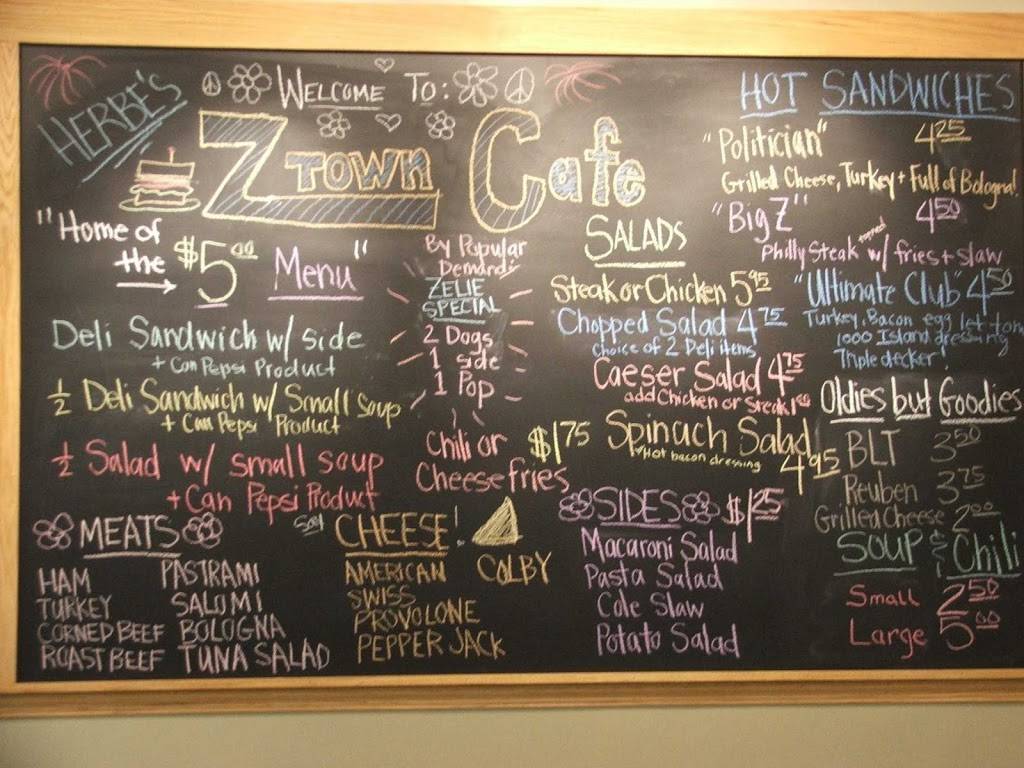 HERBE'S
WELCOME TO:
Z TOWN Cafe
"Home of
the $5.00 Menu"
Deli Sandwich w/ side
+ Can Pepsi Product
1/2 Deli Sandwich w/ Small Soup
+ Can Pepsi Product
1/2 Salad w/ small soup
+ Can Pepsi Product
MEATS
HAM
TURKEY
CORNED BEEF
ROAST BEEF
PASTRAMI
SALOMI
BOLOGNA
TUNA SALAD
Say CHEESE!
AMERICAN
SWISS
PROVOLONE
PEPPER JACK
COLBY
By Popular
Demand:
ZELIE
SPECIAL
2 Dogs
1 side
1 Pop
Chili or $1.75
Cheese fries
SALADS
Steak or Chicken 5.95
Chopped Salad 4.75
choice of 2 Deli items
Caeser Salad 4.75
add Chicken or Steak 1.00
Spinach Salad
Hot bacon dressing 4.95
SIDES $1.25
Macaroni Salad
Pasta Salad
Cole Slaw
Potato Salad
HOT SANDWICHES
"Politician" 4.25
Grilled Cheese, Turkey + Full of Bologna!
"Big Z" 4.50
Philly Steak w/ fries + slaw
"Ultimate Club" 4.50
Turkey, Bacon, egg let tom
1000 Island dressing
Triple decker!
Oldies but Goodies
BLT 3.50
Reuben 3.75
Grilled Cheese 2.00
SOUP & Chili
Small 2.50
Large 5.00